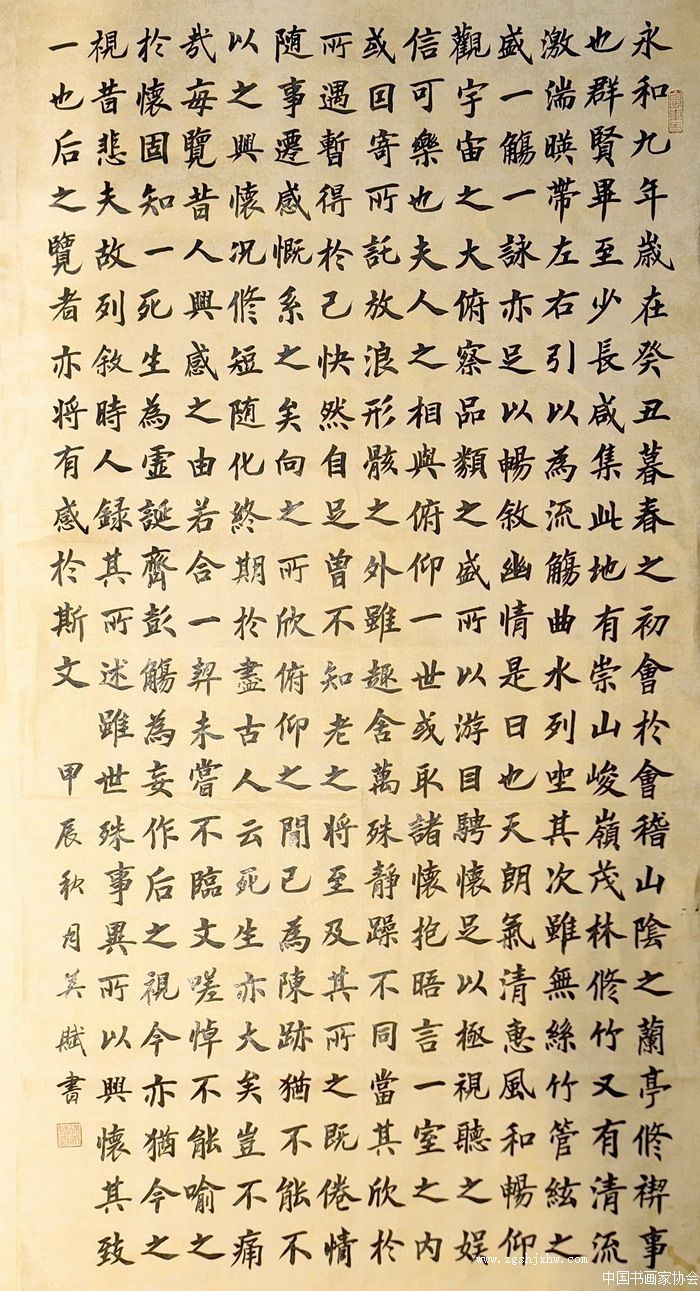 永和九年歲在癸丑暮春之初會於會稽山陰之蘭亭修禊事
也群賢畢至少長咸集此地有崇山峻嶺茂林修竹又有清流
激湍暎帶左右引以為流觴曲水列坐其次雖無絲竹管絃之
盛一觴一詠亦足以暢敘幽情是日也天朗氣清惠風和暢仰
觀宇宙之大俯察品類之盛所以游目騁懷足以極視聽之娛
信可樂也夫人之相與俯仰一世或取諸懷抱晤言一室之內
或因寄所託放浪形骸之外雖趣舍萬殊靜躁不同當其欣於
所遇暫得於己快然自足曾不知老之將至及其所之既倦情
隨事遷感慨系之矣向之所欣俯仰之間已為陳跡猶不能不
以之興懷況修短隨化終期於盡古人云死生亦大矣豈不痛
哉每覽昔人興感之由若合一契未嘗不臨文嗟悼不能喻之
於懷固知一死生為虛誕齊彭觴為妄作后之視今亦猶今之
視昔悲夫故列敘時人錄其所述雖世殊事異所以興懷其致
一也后之覽者亦將有感於斯文
甲辰秋月賦書
www.zgshjxhw.com
中国书画家协会